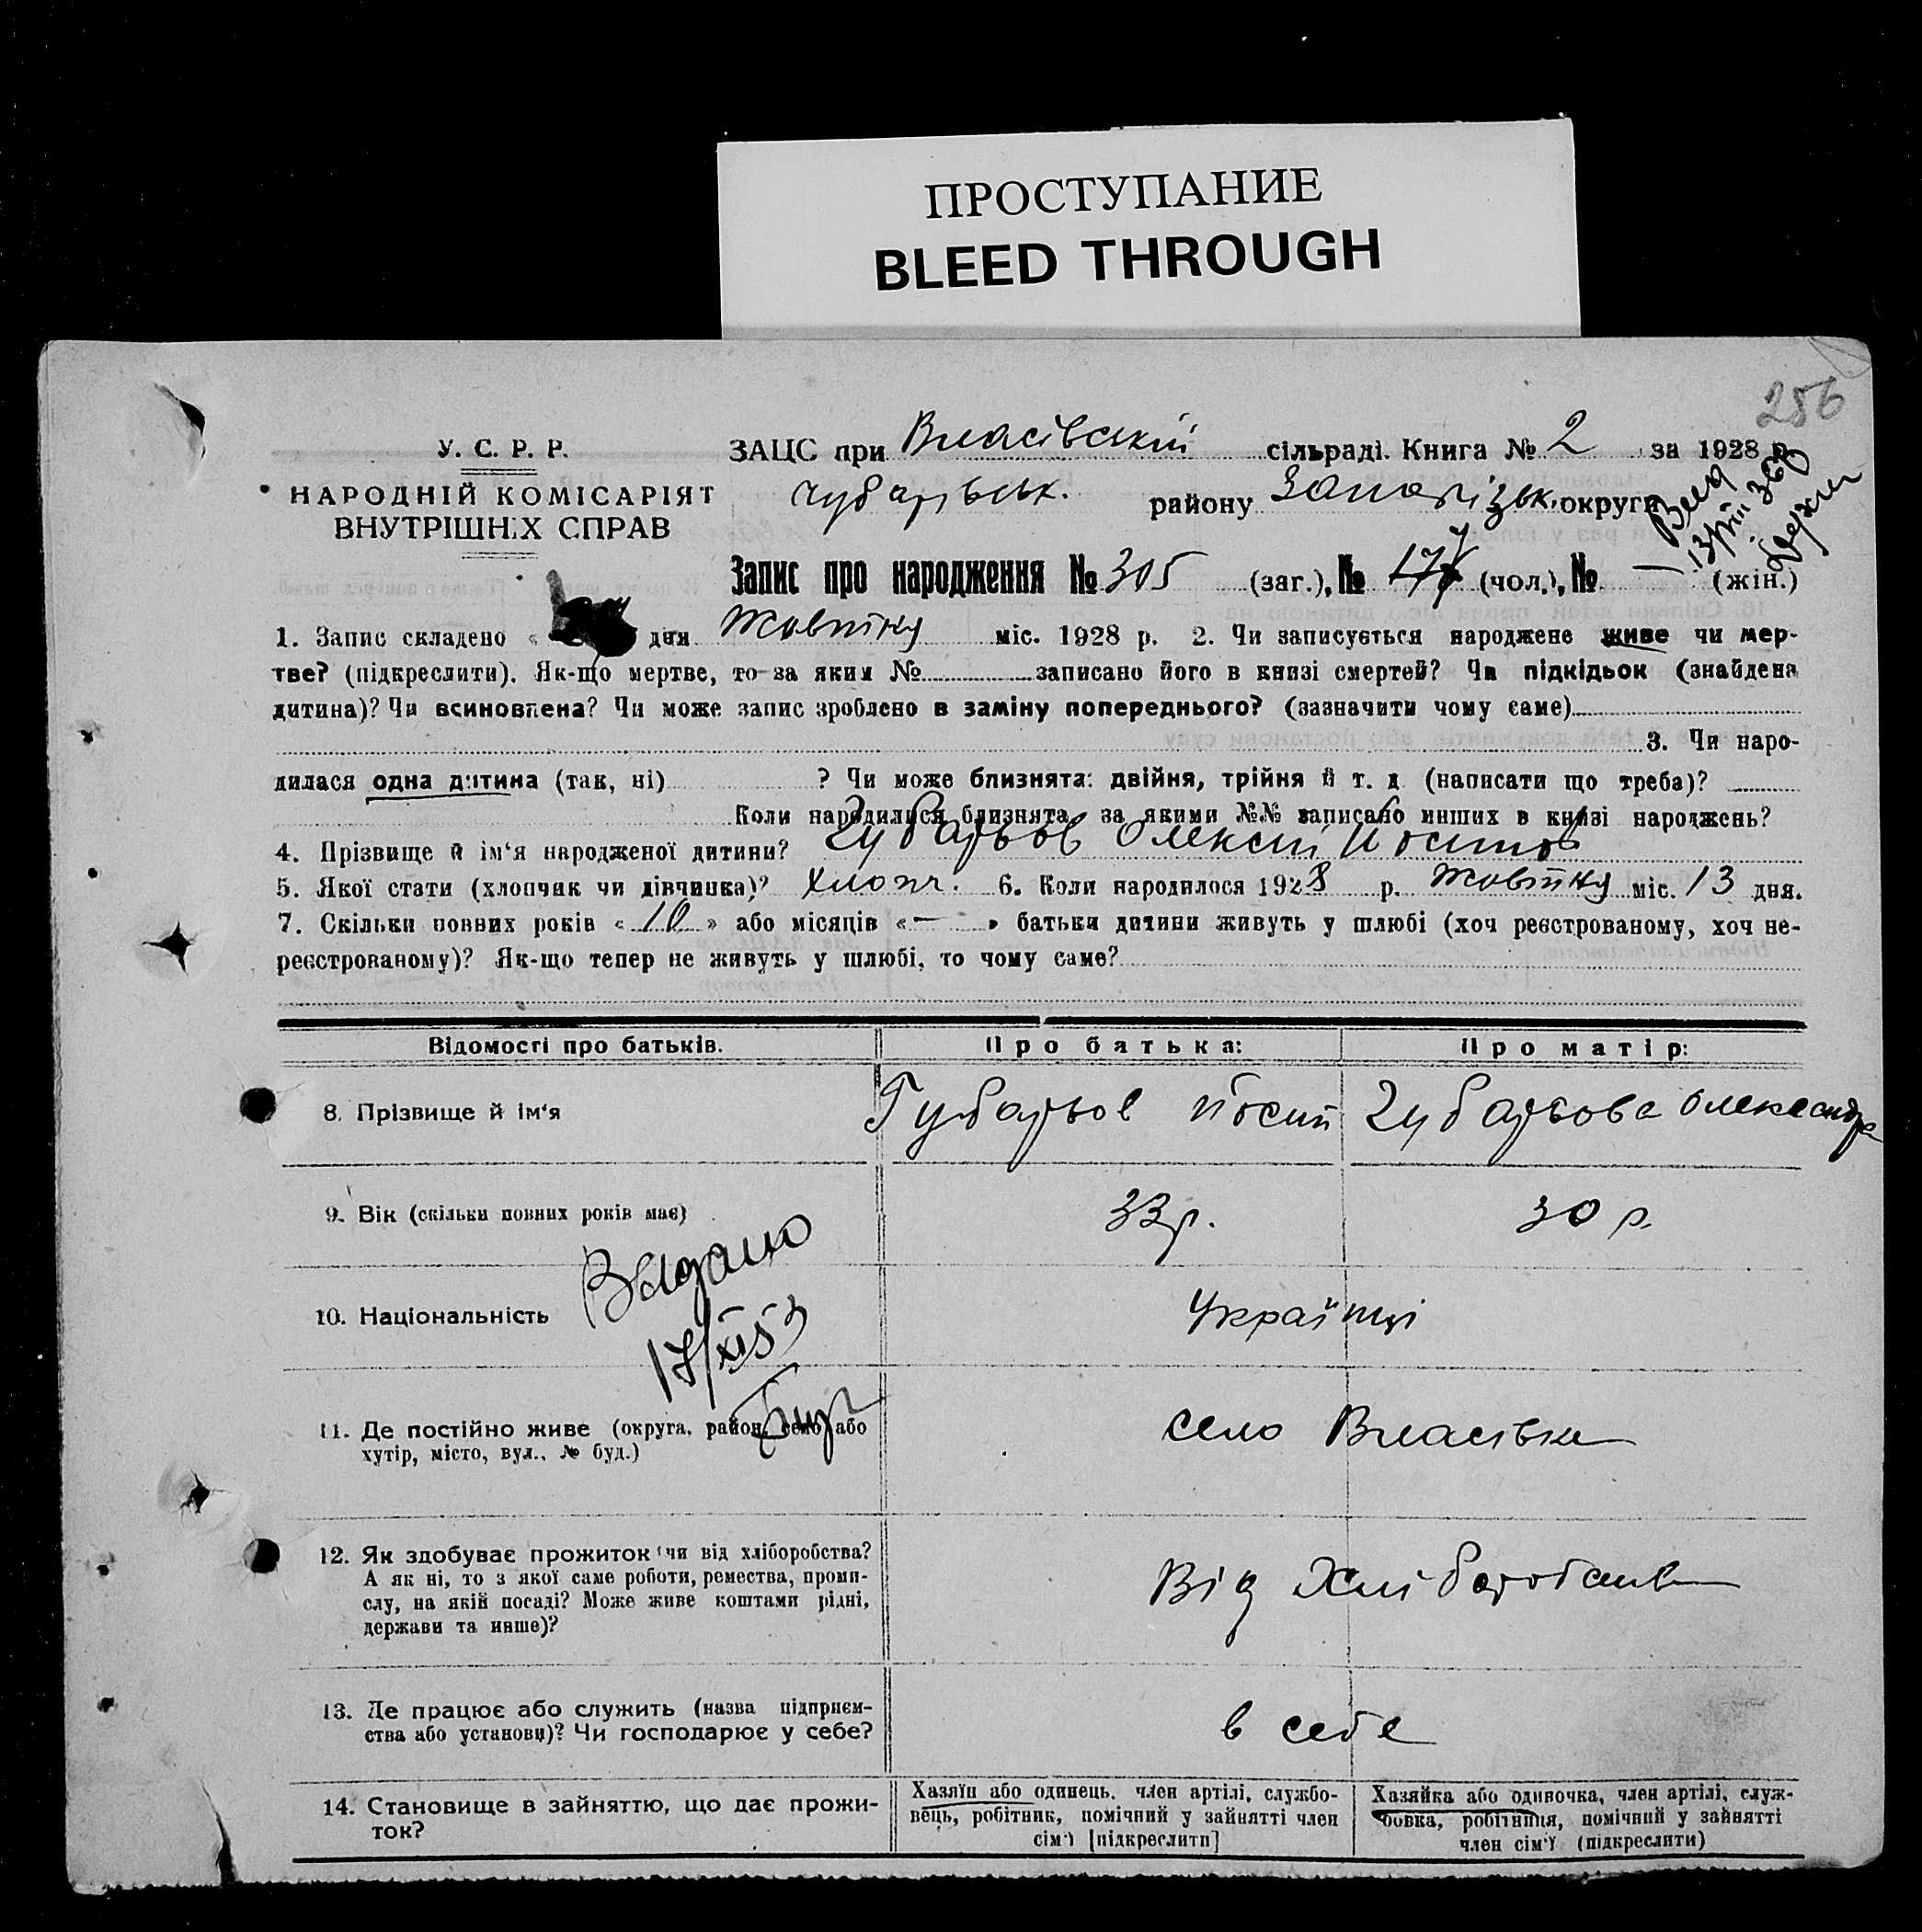 ПРОСТУПАНИЕ
BLEED THROUGH
256
У. С. Р. Р.
НАРОДНІЙ КОМІСАРІЯТ
ВНУТРІШНІХ СПРАВ
ЗАЦС при Власівській сільраді. Книга № 2 за 1928 р
Чубарівськ. району Запорізьк. округи
Запис про народження № 305 (заг.), № (чол.), № — (жін.)
1. Запис складено « дня Жовтня міс. 1928 р. 2. Чи записується народжене живе чи мер-
тве? (підкреслити). Як-що мертве, то за яким № записано його в книзі смертей? Чи підкідьок (знайдена
дитина)? Чи всиновлена? Чи може запис зроблено в заміну попереднього? (зазначити чому саме)
3. Чи наро-
дилася одна дитина (так, ні) ? Чи може близнята: двійня, трійня й т. д (написати що треба)?
Коли народилися близнята, за якими №№ записано инших в книзі народжень?
4. Прізвище й ім‘я народженої дитини? Губарьов Олексій Йосипов
5. Якої стати (хлопчик чи дівчинка)? хлопч. 6. Коли народилося 1928 р. Жовтня міс. 13 дня.
7. Скільки повних років « 10 » або місяців « — » батьки дитини живуть у шлюбі (хоч реєстрованому, хоч не-
реєстрованому)? Як-що тепер не живуть у шлюбі, то чому саме?
Відомості про батьків. Про батька: Про матір:
8. Прізвище й ім‘я Губарьов Йосип Губарьова Олександра
9. Вік (скільки повних років має) 33 р. 30 р.
10. Національність Українці
11. Де постійно живе (округа, район, село або
хутір, місто, вул., № буд.) село Власівка
12. Як здобуває прожиток (чи від хліборобства?
А як ні, то з якої саме роботи, ремества, проми-
слу, на якій посаді? Може живе коштами рідні,
держави та инше)? Від Хліборобства
13. Де працює або служить (назва підприєм-
ства або установи)? Чи господарює у себе? в себе
14. Становище в зайняттю, що дає прожи-
ток?
Хазяїн або одинець, член артілі, службо-
вець, робітник, помічний у зайнятті член
сім‘ї [підкреслити]
Хазяйка або одиночка, член артілі, служ-
бовка, робітниця, помічний у зайнятті
член сім‘ї (підкреслити)